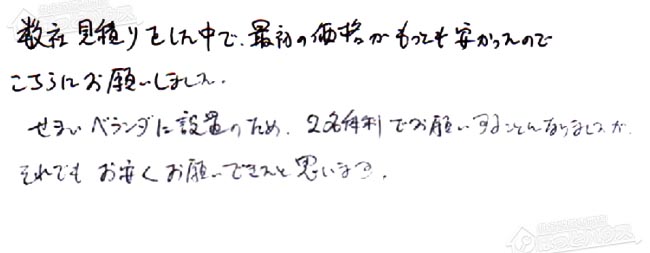 数社見積りをした中で、最初の価格がもっとも安かったので
こちらにお願いしました。
せまいベランダに設置のため、2名体制でお願いすることになりましたが、
それでもお安くお願いできたと思います。